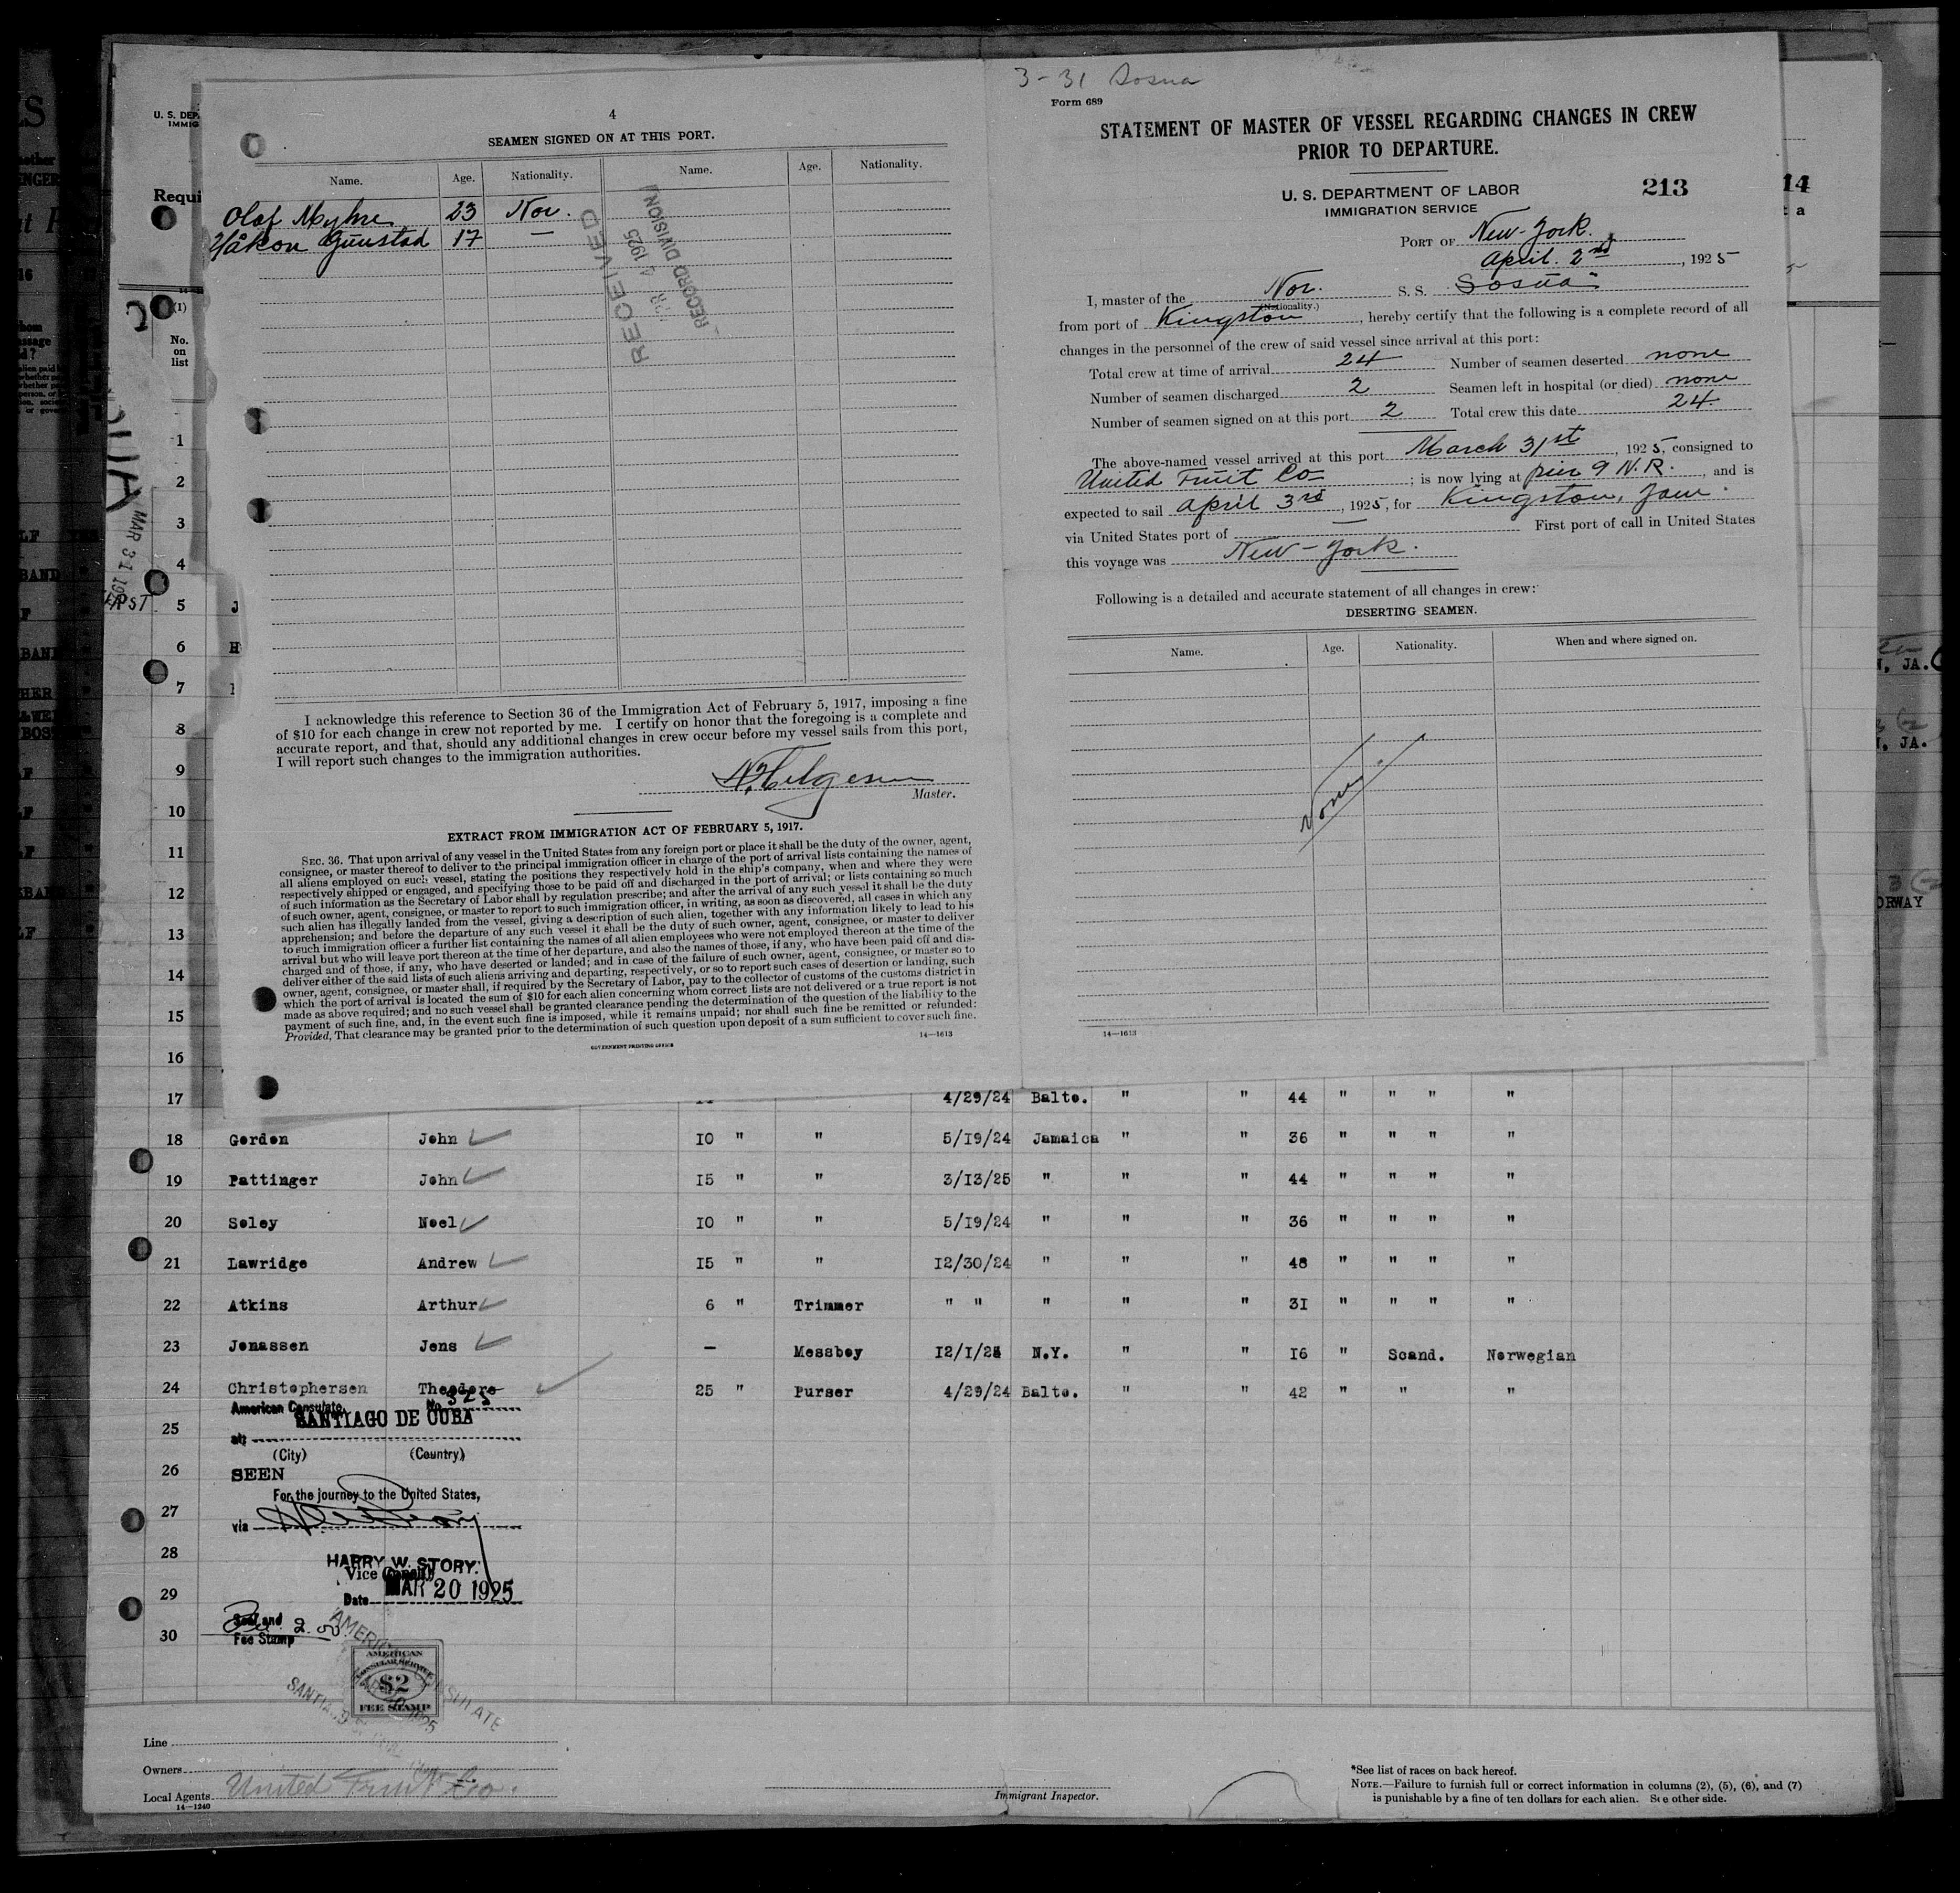 4
SEAMEN SIGNED ON AT THIS PORT.
Name. Age. Nationality. Name. Age. Nationality.
Olaf Myhre 23 Nor.
Håkon Gunstad 17 —
RECEIVED
4 1925
RECORD DIVISION
I acknowledge this reference to Section 36 of the Immigration Act of February 5, 1917, imposing a fine
of $10 for each change in crew not reported by me. I certify on honor that the foregoing is a complete and
accurate report, and that, should any additional changes in crew occur before my vessel sails from this port,
I will report such changes to the immigration authorities.
Master.
EXTRACT FROM IMMIGRATION ACT OF FEBRUARY 5, 1917.
SEC. 36. That upon arrival of any vessel in the United States from any foreign port or place it shall be the duty of the owner, agent,
consignee, or master thereof to deliver to the principal immigration officer in charge of the port of arrival lists containing the names of
all aliens employed on such vessel, stating the positions they respectively hold in the ship's company, when and where they were
respectively shipped or engaged, and specifying those to be paid off and discharged in the port of arrival; or lists containing so much
of such information as the Secretary of Labor shall by regulation prescribe; and after the arrival of any such vessel it shall be the duty
of such owner, agent, consignee, or master to report to such immigration officer, in writing, as soon as discovered, all cases in which any
such alien has illegally landed from the vessel, giving a description of such alien, together with any information likely to lead to his
apprehension; and before the departure of any such vessel it shall be the duty of such owner, agent, consignee, or master to deliver
to such immigration officer a further list containing the names of all alien employees who were not employed thereon at the time of the
arrival but who will leave port thereon at the time of her departure, and also the names of those, if any, who have been paid off and dis-
charged and of those, if any, who have deserted or landed; and in case of the failure of such owner, agent, consignee, or master so to
deliver either of the said lists of such aliens arriving and departing, respectively, or so to report such cases of desertion or landing, such
owner, agent, consignee, or master shall, if required by the Secretary of Labor, pay to the collector of customs of the customs district in
which the port of arrival is located the sum of $10 for each alien concerning whom correct lists are not delivered or a true report is not
made as above required; and no such vessel shall be granted clearance pending the determination of the question of the liability to the
payment of such fine, and, in the event such fine is imposed, while it remains unpaid; nor shall such fine be remitted or refunded:
Provided, That clearance may be granted prior to the determination of such question upon deposit of a sum sufficient to cover such fine.
14—1613
GOVERNMENT PRINTING OFFICE
3-31 Sosua
Form 689
STATEMENT OF MASTER OF VESSEL REGARDING CHANGES IN CREW
PRIOR TO DEPARTURE.
U. S. DEPARTMENT OF LABOR
IMMIGRATION SERVICE
213
PORT OF New-York.
April. 2nd, 1925
I, master of the Nor. S. S. Sosua
(Nationality.)
from port of Kingston, hereby certify that the following is a complete record of all
changes in the personnel of the crew of said vessel since arrival at this port:
Total crew at time of arrival 24 Number of seamen deserted none
Number of seamen discharged 2 Seamen left in hospital (or died) none
Number of seamen signed on at this port 2 Total crew this date 24.
The above-named vessel arrived at this port March 31st, 1925, consigned to
United Fruit Co; is now lying at pier 9 N.R., and is
expected to sail April 3rd, 1925, for Kingston, Jam.
via United States port of — First port of call in United States
this voyage was New-York.
Following is a detailed and accurate statement of all changes in crew:
DESERTING SEAMEN.
Name. Age. Nationality. When and where signed on.
None.
14—1613
U. S. DEP
IMMIG
Requi
(1)
No.
on
list
MAR 31 19
1
2
3
4
5 J
6 H
7
8
9
10
11
12
13
14
15
16
17 4/29/24 Balto. " " 44 " " " "
18 Gordon John 10 " " 5/19/24 Jamaica " " 36 " " " "
19 Pattinger John 15 " " 3/13/25 " " " 44 " " " "
20 Soley Noel 10 " " 5/19/24 " " " 36 " " " "
21 Lawridge Andrew 15 " " 12/30/24 " " " 48 " " " "
22 Atkins Arthur 6 " Trimmer " " " " " 31 " " " "
23 Jonassen Jens — Messboy 12/1/24 N.Y. " " 16 " Scand. Norwegian
24 Christophersen Theodore 25 " Purser 4/29/24 Balto. " " 42 " " "
American Consulate, No. 325
SANTIAGO DE CUBA
25 at
(City) (Country)
26 SEEN
For the journey to the United States,
27 via
28 HARRY W. STORY.
Vice Consul
29 Date MAR 20 1925
Seal and
Fee Stamp 2.00
30
AMERICAN
CONSULAR SERVICE
$2
FEE STAMP
Line
Owners
Local Agents United Fruit Co.
14—1240
Immigrant Inspector.
*See list of races on back hereof.
NOTE.—Failure to furnish full or correct information in columns (2), (5), (6), and (7)
is punishable by a fine of ten dollars for each alien. See other side.
14
JA.
JA.
ORWAY